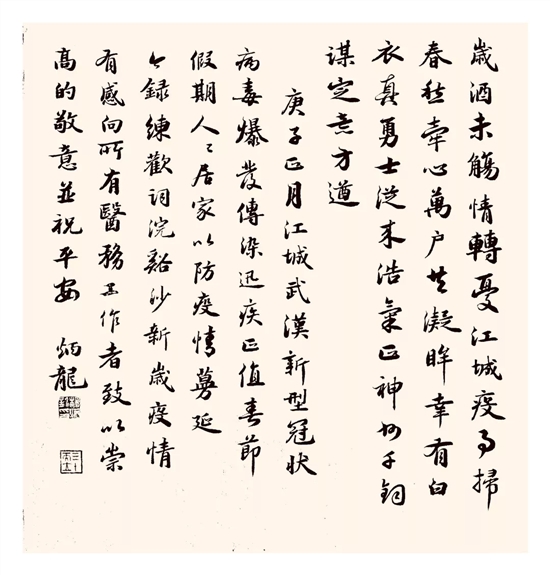 歲酒未觴情轉憂江城疫事掃
春愁牽心萬户共凝眸幸有白
衣真勇士從來浩氣正神州千鈞
謀定方遒
庚子正月江城武漢新型冠狀
病毒爆發傳染迅疾正值春節
假期人々居家以防疫情蔓延
今録練歡詞浣谿沙新歲疫情
有感向所有醫務工作者致以崇
高的敬意並祝平安 炳龍